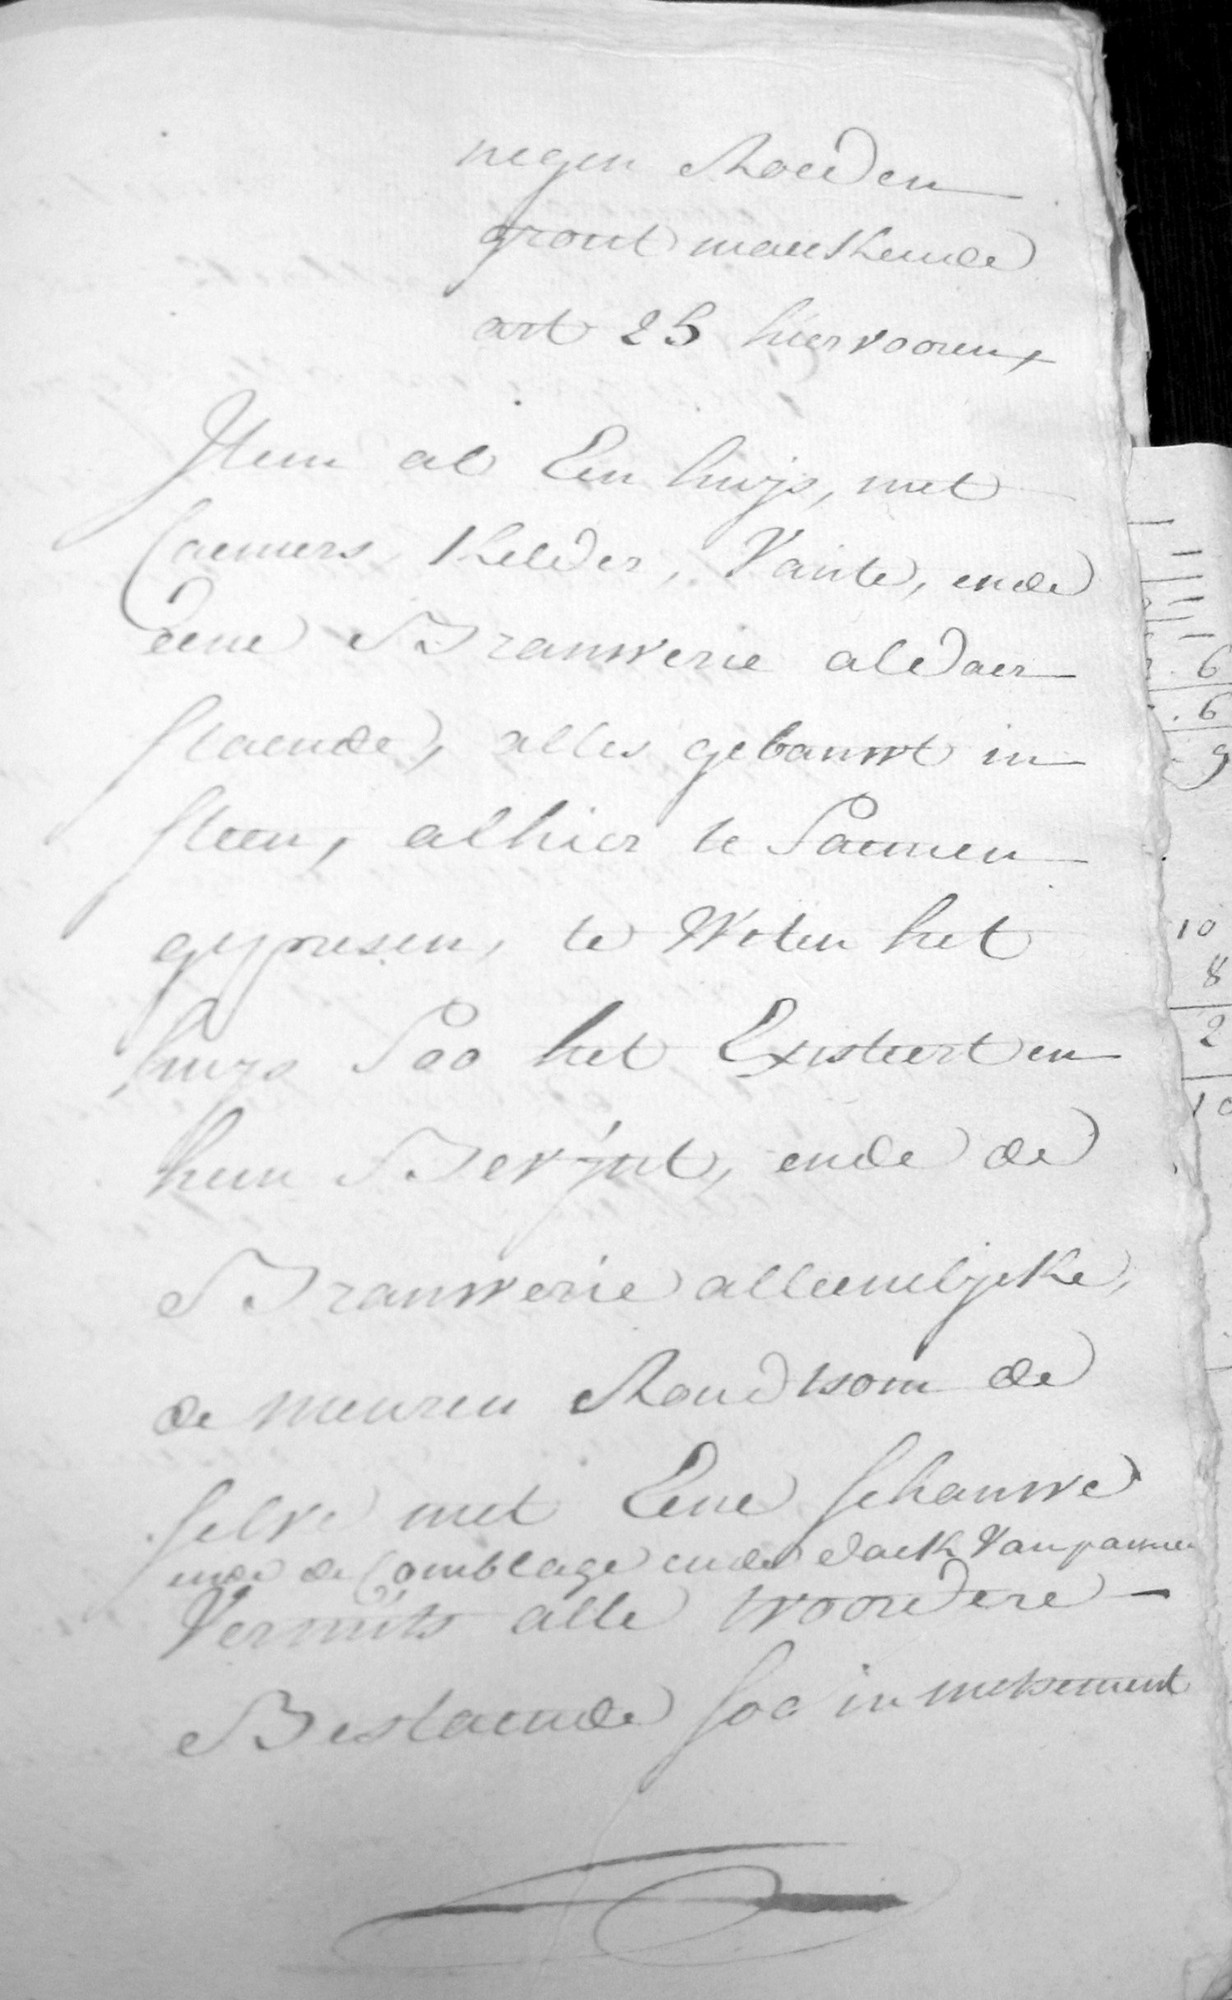 negen Roeden
gront maekende
art 25 hiervooren
Item al Een huijs, met
Caemers, Kelder, Vaute, ende
Eene Brauwerie aldaer
staende, alles gebauwt in
steen, alhier te Saemen
gepresen, te Weten het
huijs Soo het Existeert en
hem Bevint, ende de
Brauwerie alleenelijcke,
de meuren Rondtsom de
selve met Eene schauwe
ende de Comblage ende dack Van pannen
Vermits alle woordere
Bestaende soo in metsement
6
6
9
10
8
2
10